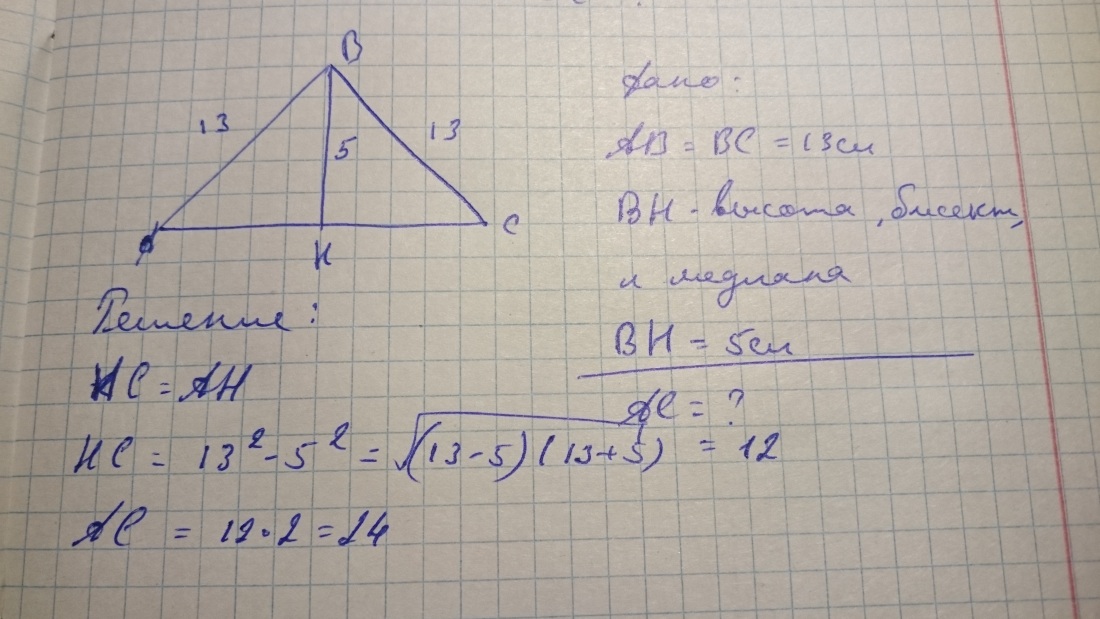 B
13
13
5
A
H
C
Дано:
AB = BC = 13см
BH - высота, бисект,
и медиана
BH = 5см
AC = ?
Решение:
HC = AH
HC = 13² - 5² = √(13-5)(13+5) = 12
AC = 12·2 = 24